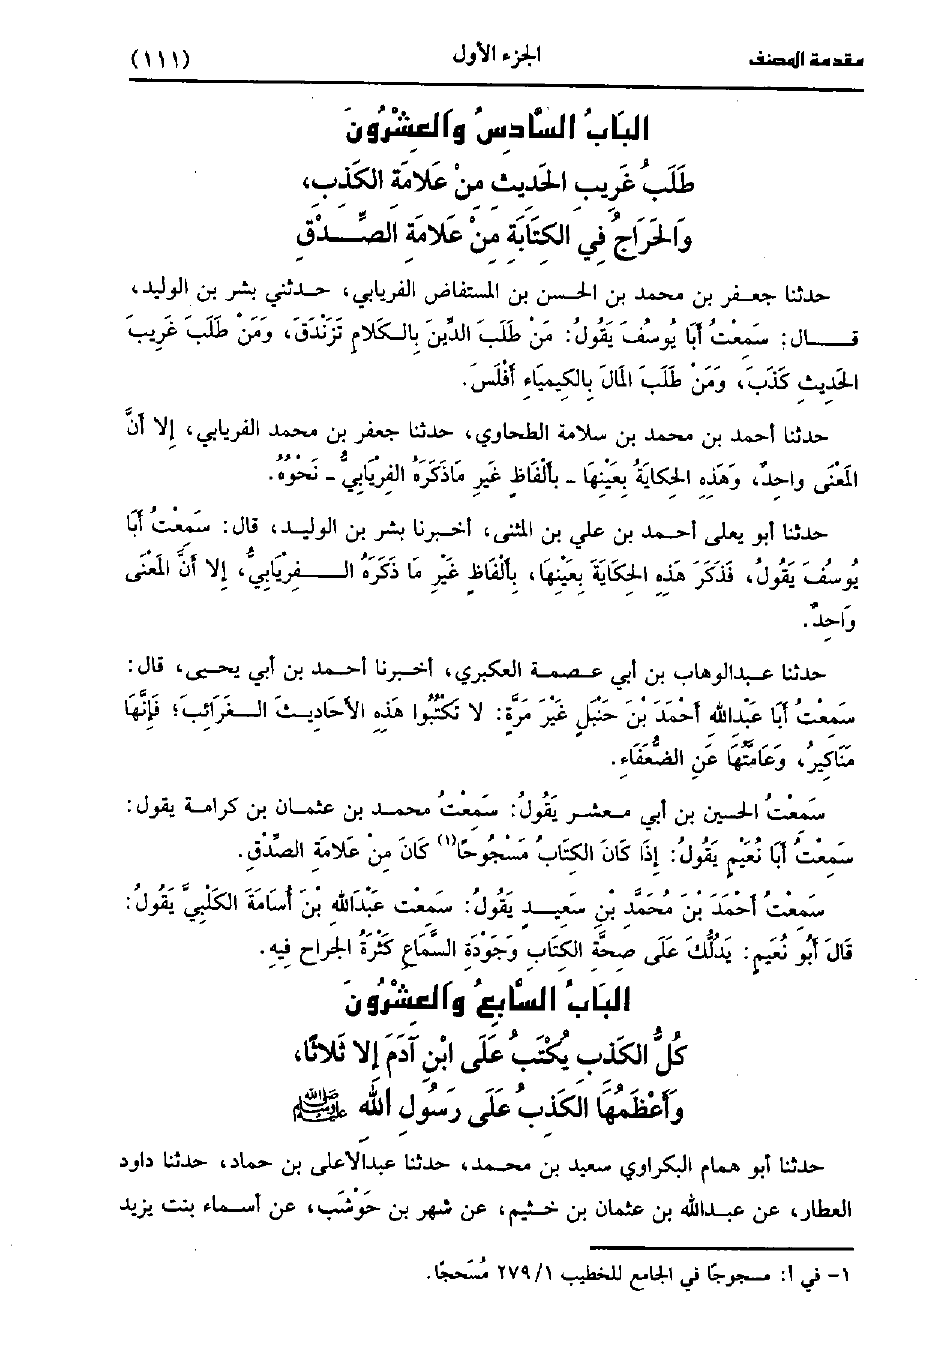 مقدمة المصنف الجزء الأول (١١١)
البَابُ السَّادسُ والعِشْرُونَ
طَلَبُ غَرِيبِ الحَديثِ مِنْ عَلامَةِ الكَذِبِ،
وَالجَرَاحُ فِي الكِتَابَةِ مِنْ عَلامَةِ الصِّدْقِ
حدثنا جعفر بن محمد بن الحسن بن المستفاض الفريابي، حدثني بشر بن الوليد،
قال: سَمِعْتُ أَبَا يُوسُفَ يَقُولُ: مَنْ طَلَبَ الدِّينَ بِالكَلامِ تَزَنْدَقَ، وَمَنْ طَلَبَ غَرِيبَ
الحَدِيثِ كَذَبَ، وَمَنْ طَلَبَ المَالَ بِالكِيمْيَاءِ أَفْلَسَ.
حدثنا أحمد بن محمد بن سلامة الطحاوي، حدثنا جعفر بن محمد الفريابي، إلا أنَّ
المَعْنَى واحِدٌ، وَهَذِهِ الحِكَايَةُ بِعَيْنِهَا - بِأَلْفَاظٍ غَيرِ مَاذَكَرَهُ الفِرْيَابِيُّ - نَحْوُهُ.
حدثنا أبو يعلى أحمد بن علي بن المثنى، أخبرنا بشر بن الوليد، قال: سَمِعْتُ أَبَا
يُوسُفَ يَقُولُ، فَذَكَرَ هَذِهِ الحِكَايَةَ بِعَيْنِهَا، بِأَلْفَاظٍ غَيْرِ مَا ذَكَرَهُ الفِرْيَابِيُّ، إلا أَنَّ المَعْنَى
وَاحِدٌ.
حدثنا عبدالوهاب بن أبي عصمة العكبري، أخبرنا أحمد بن أبي يحيى، قال:
سَمِعْتُ أَبَا عَبْدِاللهِ أَحْمَدَ بْنَ حَنْبَلٍ غَيْرَ مَرَّة: لا تَكْتُبُوا هَذِهِ الأَحَادِيثَ الغَرَائِبَ؛ فَإِنَّهَا
مَنَاكِيرُ، وَعَامَّتُهَا عَنِ الضُّعَفَاءِ.
سَمِعْتُ الحسين بن أبي معشر يَقُولُ: سَمِعْتُ محمد بن عثمان بن كرامة يقول:
سَمِعْتُ أَبَا نُعَيْمٍ يَقُولُ: إِذَا كَانَ الكِتَابُ مَسْجُوحًا(١) كَانَ مِنْ عَلامَةِ الصِّدْقِ.
سَمِعْتُ أَحْمَدَ بْنَ مُحَمَّدِ بْنِ سعيد يَقُولُ: سَمِعْت عَبْدَاللهِ بْنَ أُسَامَةَ الكَلْبِيَّ يَقُولُ:
قَالَ أَبُو نُعَيمٍ: يَدُلُّكَ عَلَى صِحَّةِ الكِتَابِ وَجَوْدَةِ السَّمَاعِ كَثْرَةُ الجراحِ فِيهِ.
البَابُ السَّابِعُ والعِشْرُونَ
كُلُّ الكَذِبِ يُكْتَبُ عَلَى ابْنِ آدَمَ إِلا ثَلاثًا،
وَأَعْظَمُهَا الكَذِبُ عَلَى رَسُولِ اللهِ ﷺ
حدثنا أبو همام البكراوي سعيد بن محمد، حدثنا عبدالأعلى بن حماد، حدثنا داود
العطار، عن عبدالله بن عثمان بن خثيم، عن شهر بن حَوْشَب، عن أسماء بنت يزيد
١- في أ: مسجوجًا في الجامع للخطيب ٢٧٩/١ مُسَحجًا.